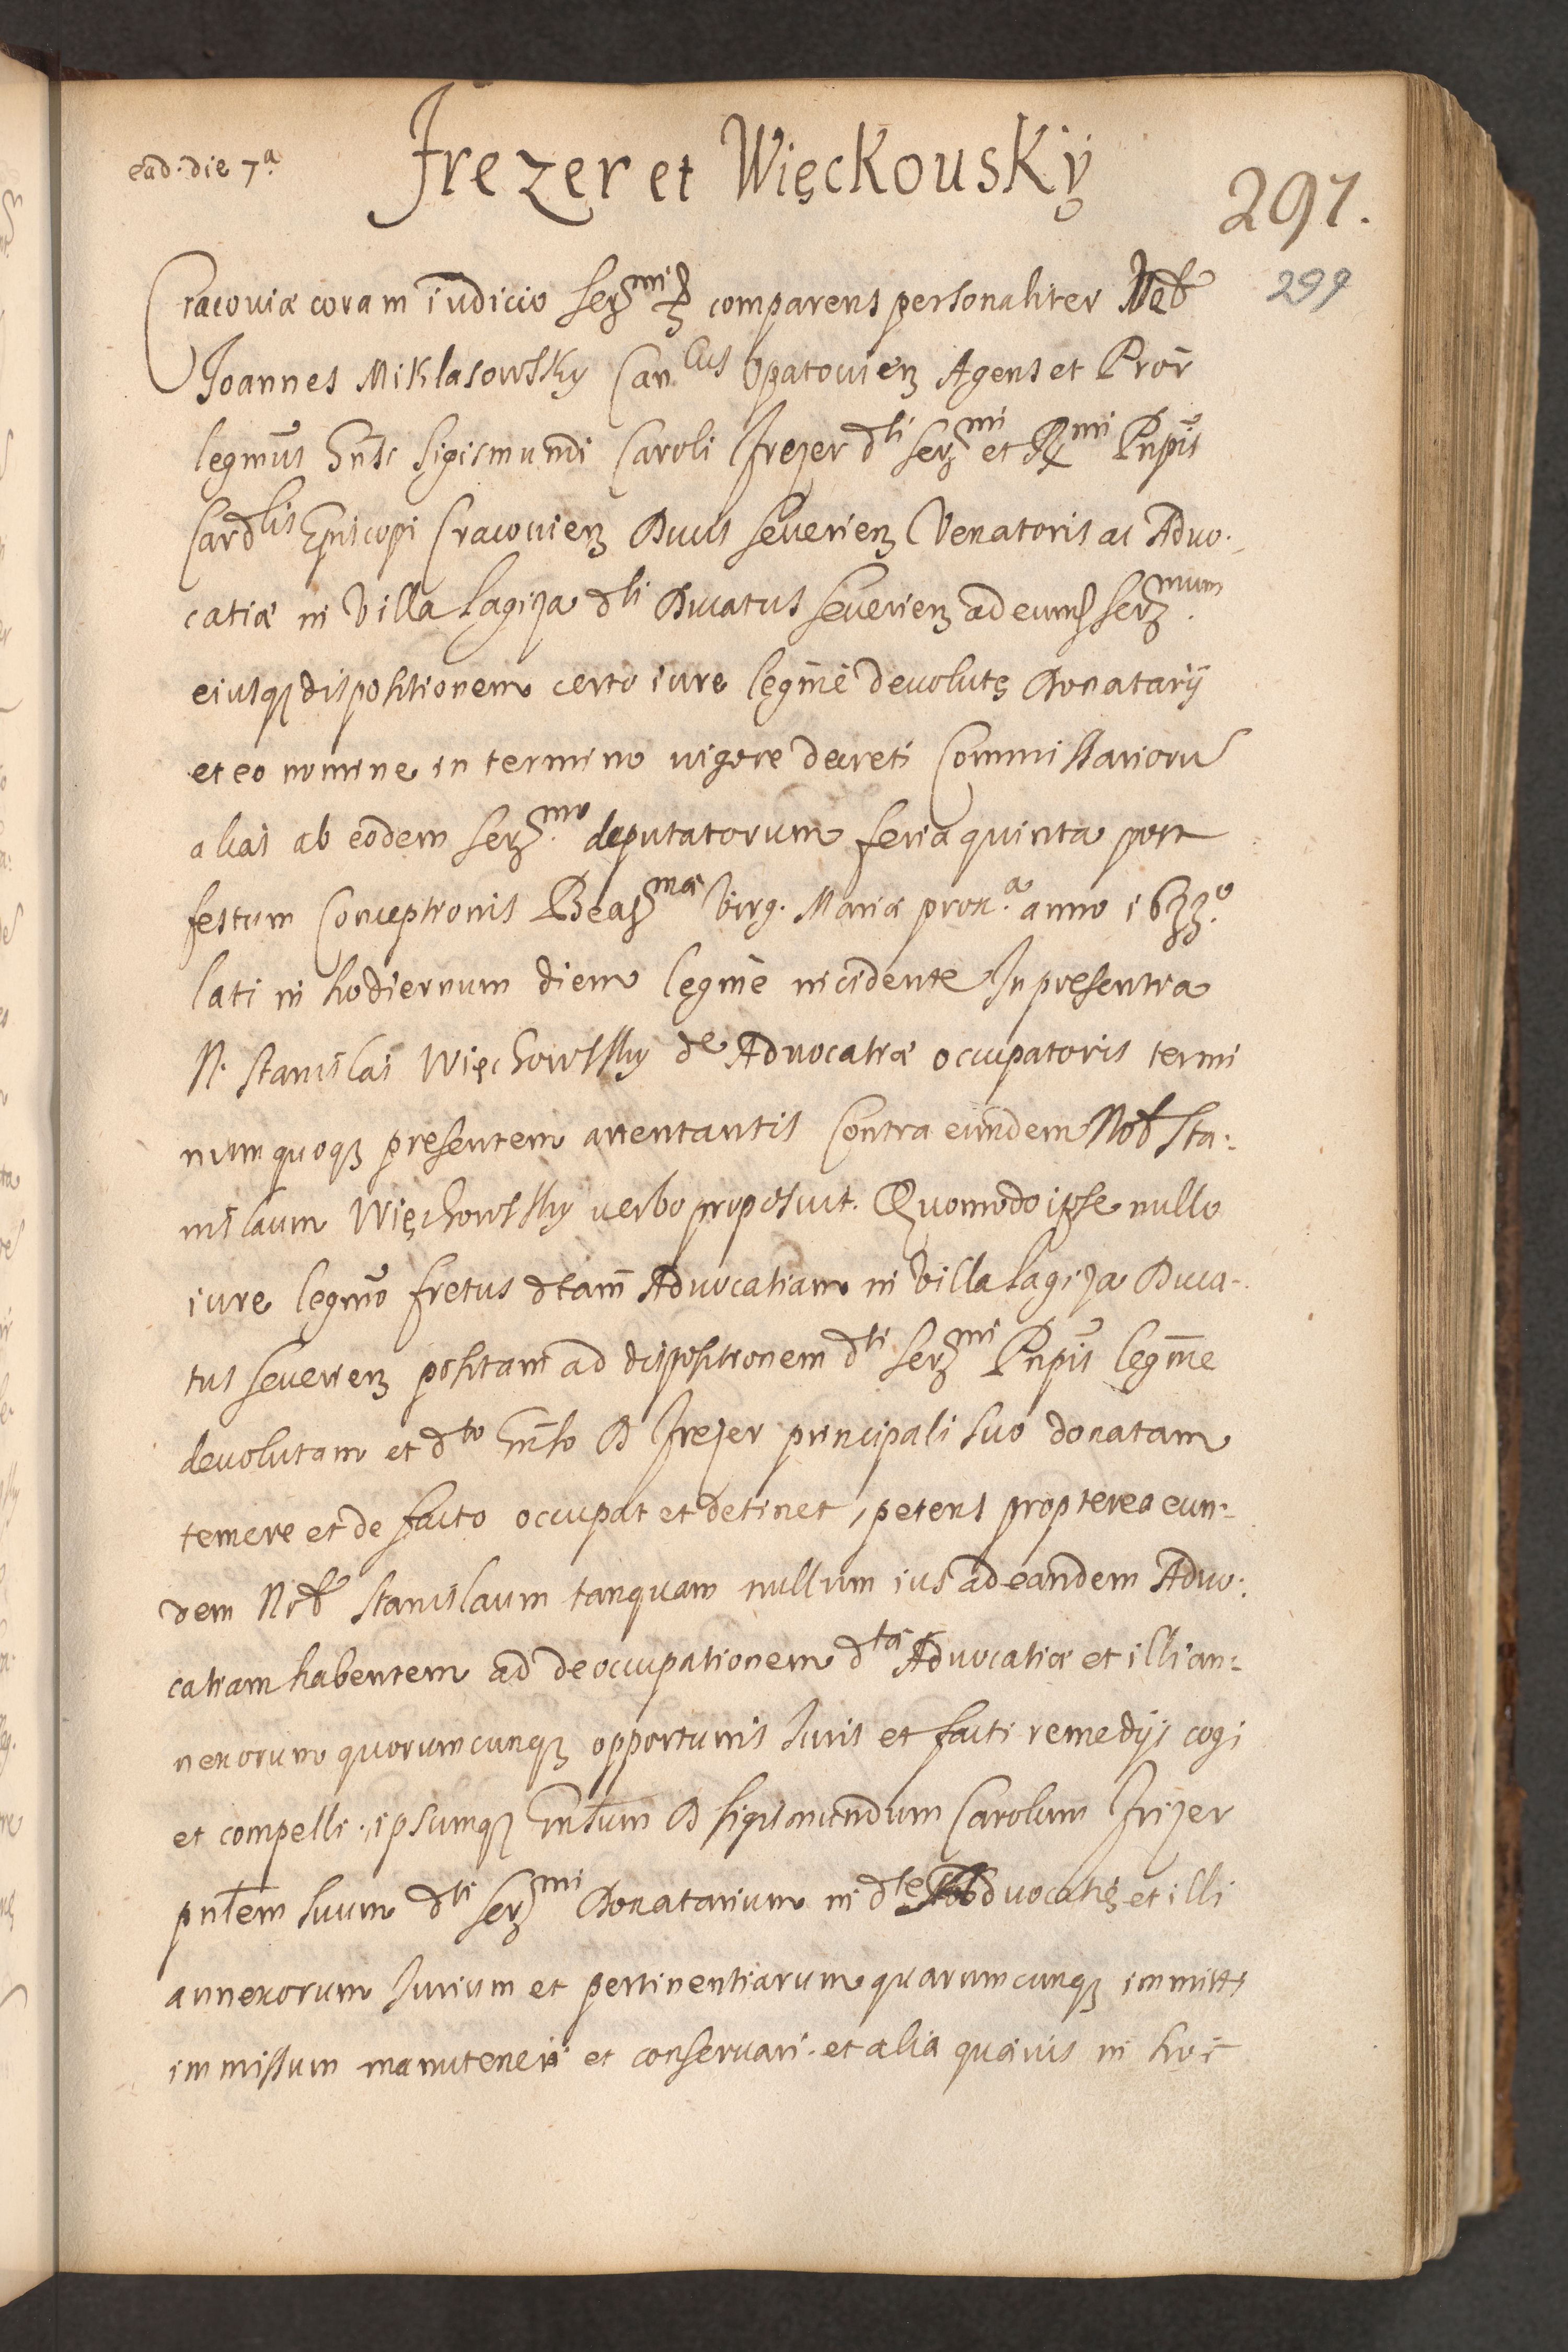 ead. die 7.a
Frezer et WięcKousKÿ
297.
299
Cracouiæ coram iudicio Serz.mi comparens personaliter Nob
Joannes Miklasowsky Can.cus Opatouienz Agens et Prōr
legmus Gnsi Sigismundi Caroli Frezer dti Serz.mi et Rx.mi Pnpis
Cardlis Episcopi Cracouienz Ducis Seuerienz Venatoris ac Aduo.
catiæ in Villa Lagiza dti Ducatus Seuerienz ad eund Serz.mum
eiusq dispositionem certo iure legme deuolutę Donatarij
et eo nomine in termino uigore decreti Commissarioru
alias ab eodem Serz.mo deputatorum feria quinta post
festum Conceptionis Beaz.mæ Virg. Mariæ prox.a anno 1633.o
lati in hodiernum diem legme incidente In presentia
N. Stanislai Więchowsky de Aduocatiæ occupatoris termi
num quoqz presentem attentantis Contra eundem Nob Sta.
nislaum Więchowsky uerbo proposuit. Quomodo ipse nullo
iure legmo fretus dtam Aduocatiam in Villa Lagiza Duca.
tus Seuerienz positam ad dispositionem dti Serz.mi Pnpis legme
deuolutam et dto Gnso D Frezer principali suo donatam
temere et de facto occupat et detinet, petens propterea eun.
dem Nob Stanislaum tanquam nullum ius ad eandem Aduo.
catiam habentem ad deoccupationem dtæ Aduocatiæ et illi an:
nexorum quorumcunqz opportunis Iuris et facti remedijs cogi
et compelli. ipsumqz Gnsum D Sigismundum Carolum Frezer
pntem suum dti Serz.mi Donatarium in dtę Aduocatię et illi
annexorum Iurium et pertinentiarum quarumcunqz immitti
immissum manuteneri et conseruari. et alia quæuis in hoc